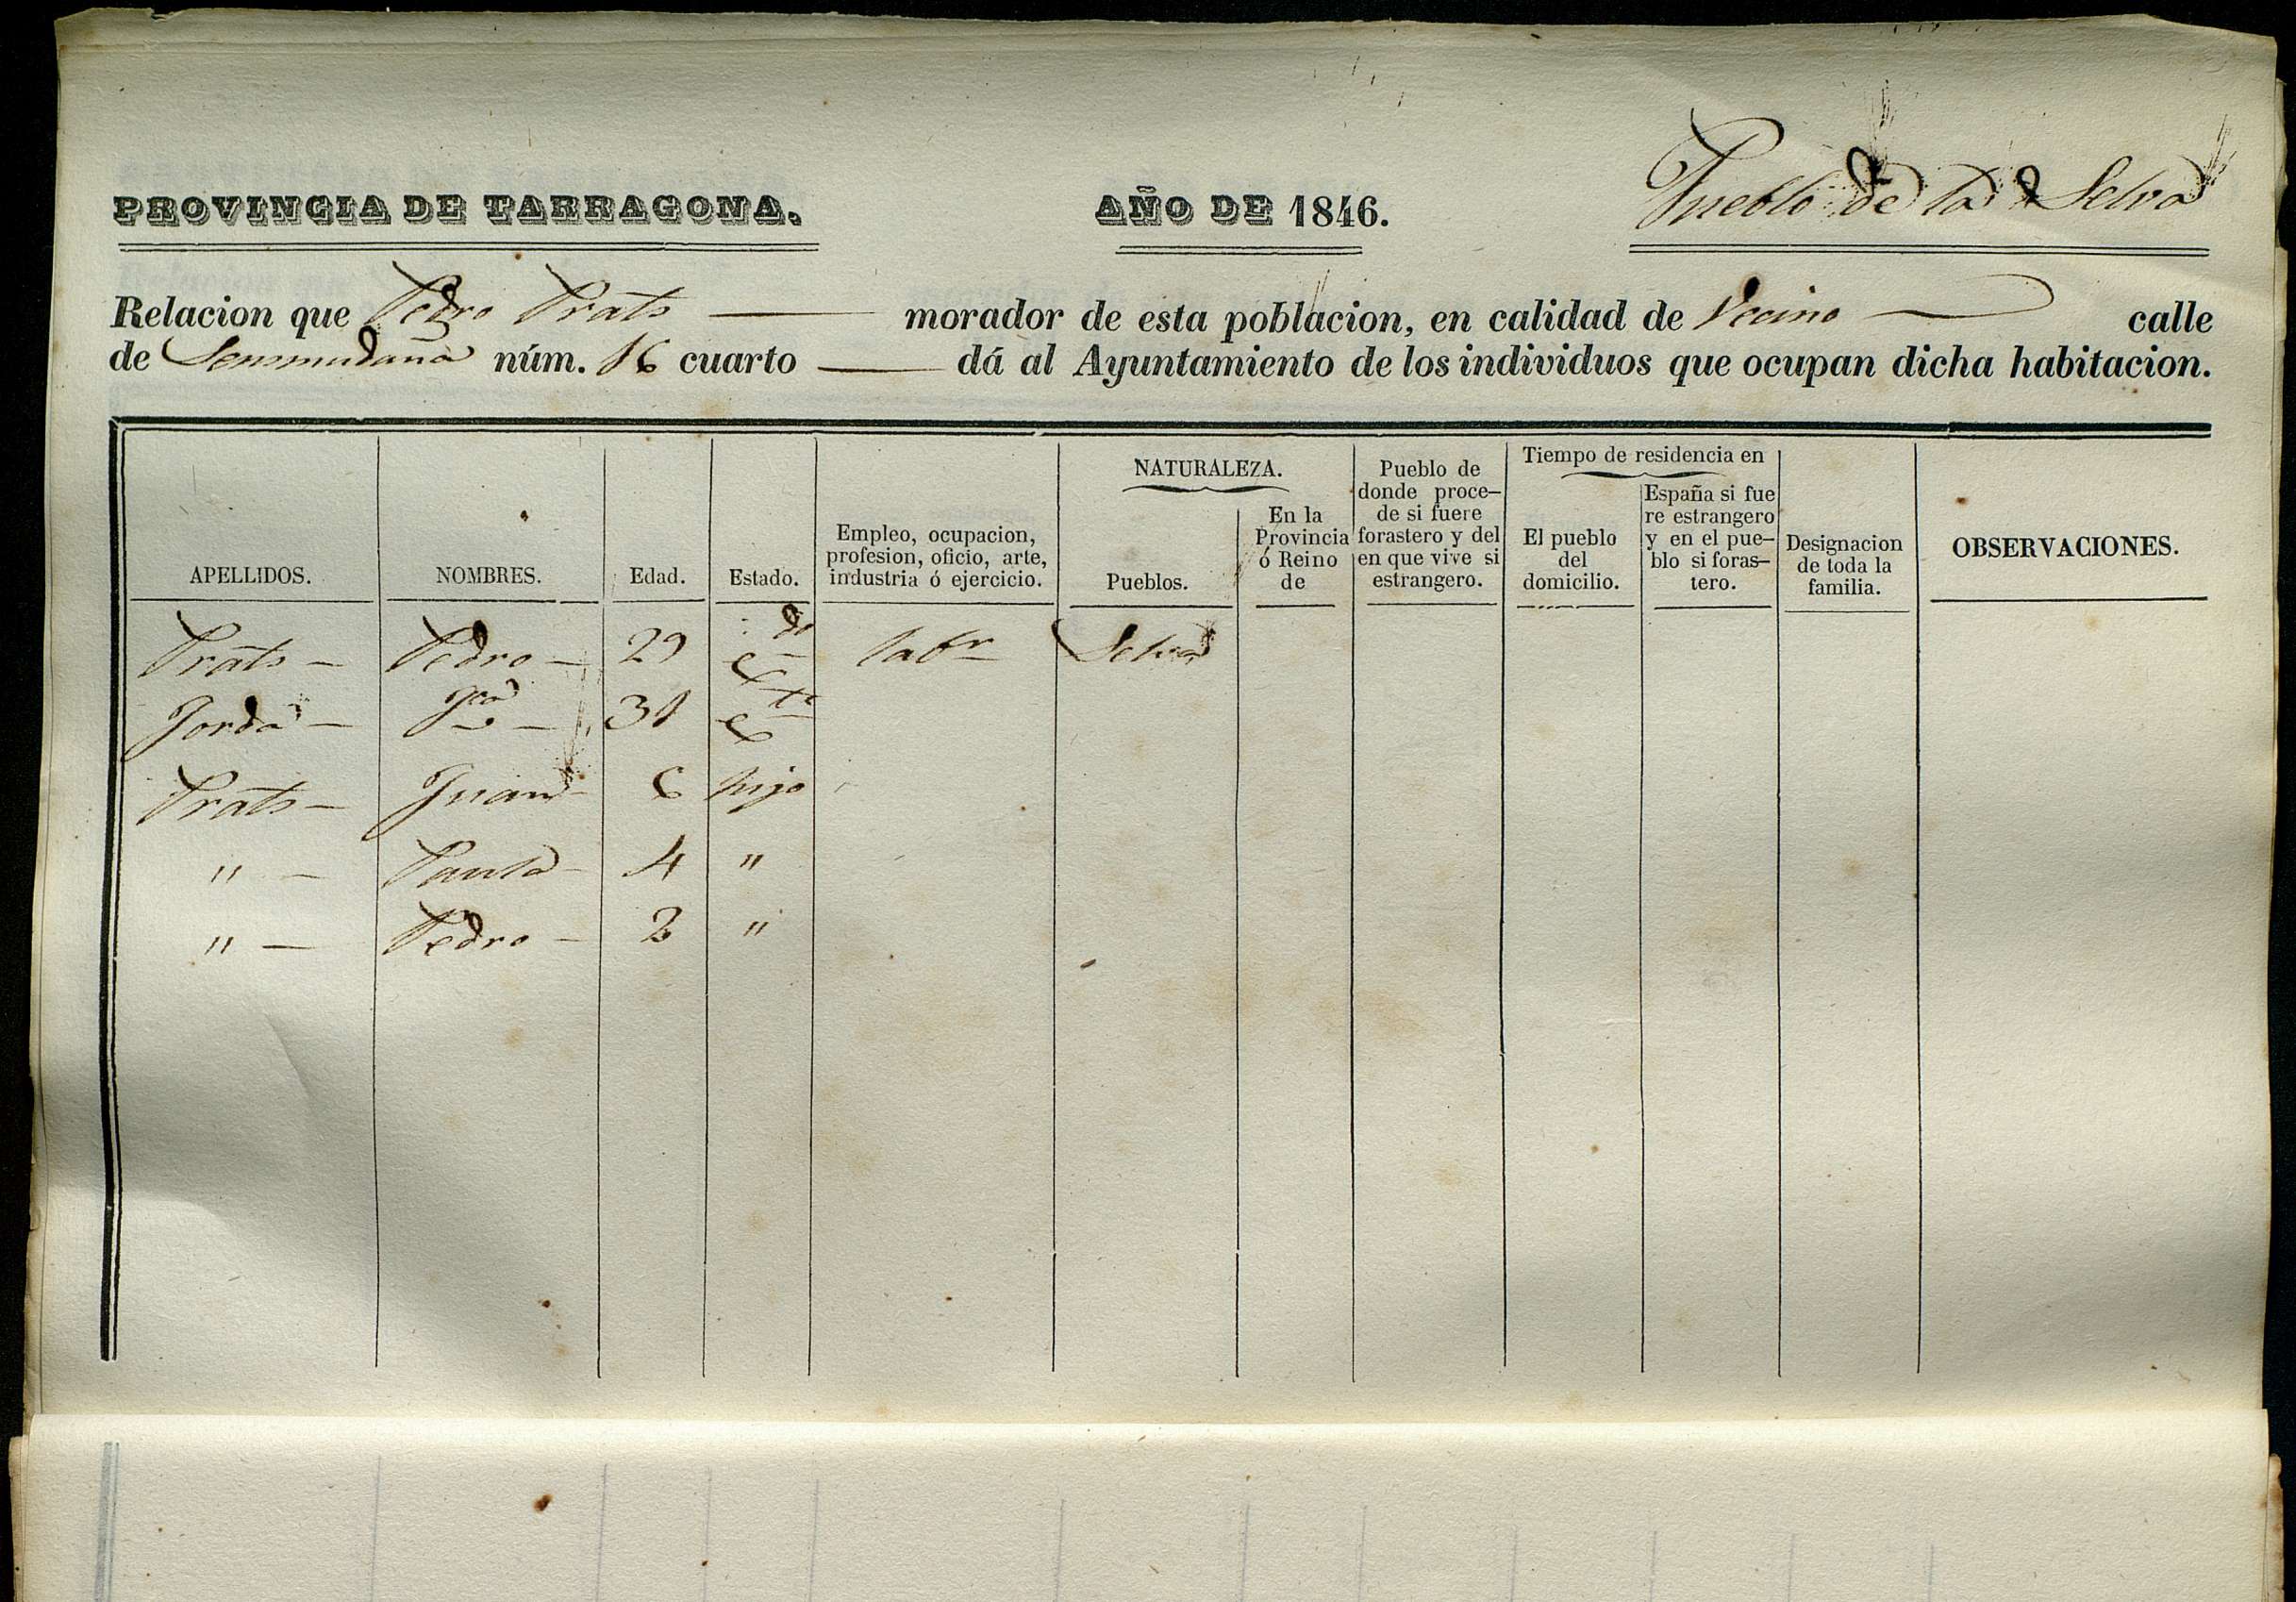 PROVINCIA DE TARRAGONA. AÑO DE 1846. Pueblo de la Selva
Relacion que Pedro Prats morador de esta poblacion, en calidad de Vecino calle
de núm. 16 cuarto dá al Ayuntamiento de los individuos que ocupan dicha habitacion.
APELLIDOS.
NOMBRES.
Edad.
Estado.
Empleo, ocupacion,
profesion, oficio, arte,
industria ó ejercicio.
NATURALEZA.
Pueblos.
En la
Provincia
ó Reino
de
Pueblo de
donde proce–
de si fuere
forastero y del
en que vive si
estrangero.
Tiempo de residencia en
El pueblo
del
domicilio.
España si fue
re estrangero
y en el pue–
blo si foras–
tero.
Designacion
de toda la
familia.
OBSERVACIONES.
Prats – Pedro – 29 Cdo labr Selva
Jorda – 31 Cta
Prats – Juan – 6 hijo
" – Paula – 4 "
" – Pedro – 2 "